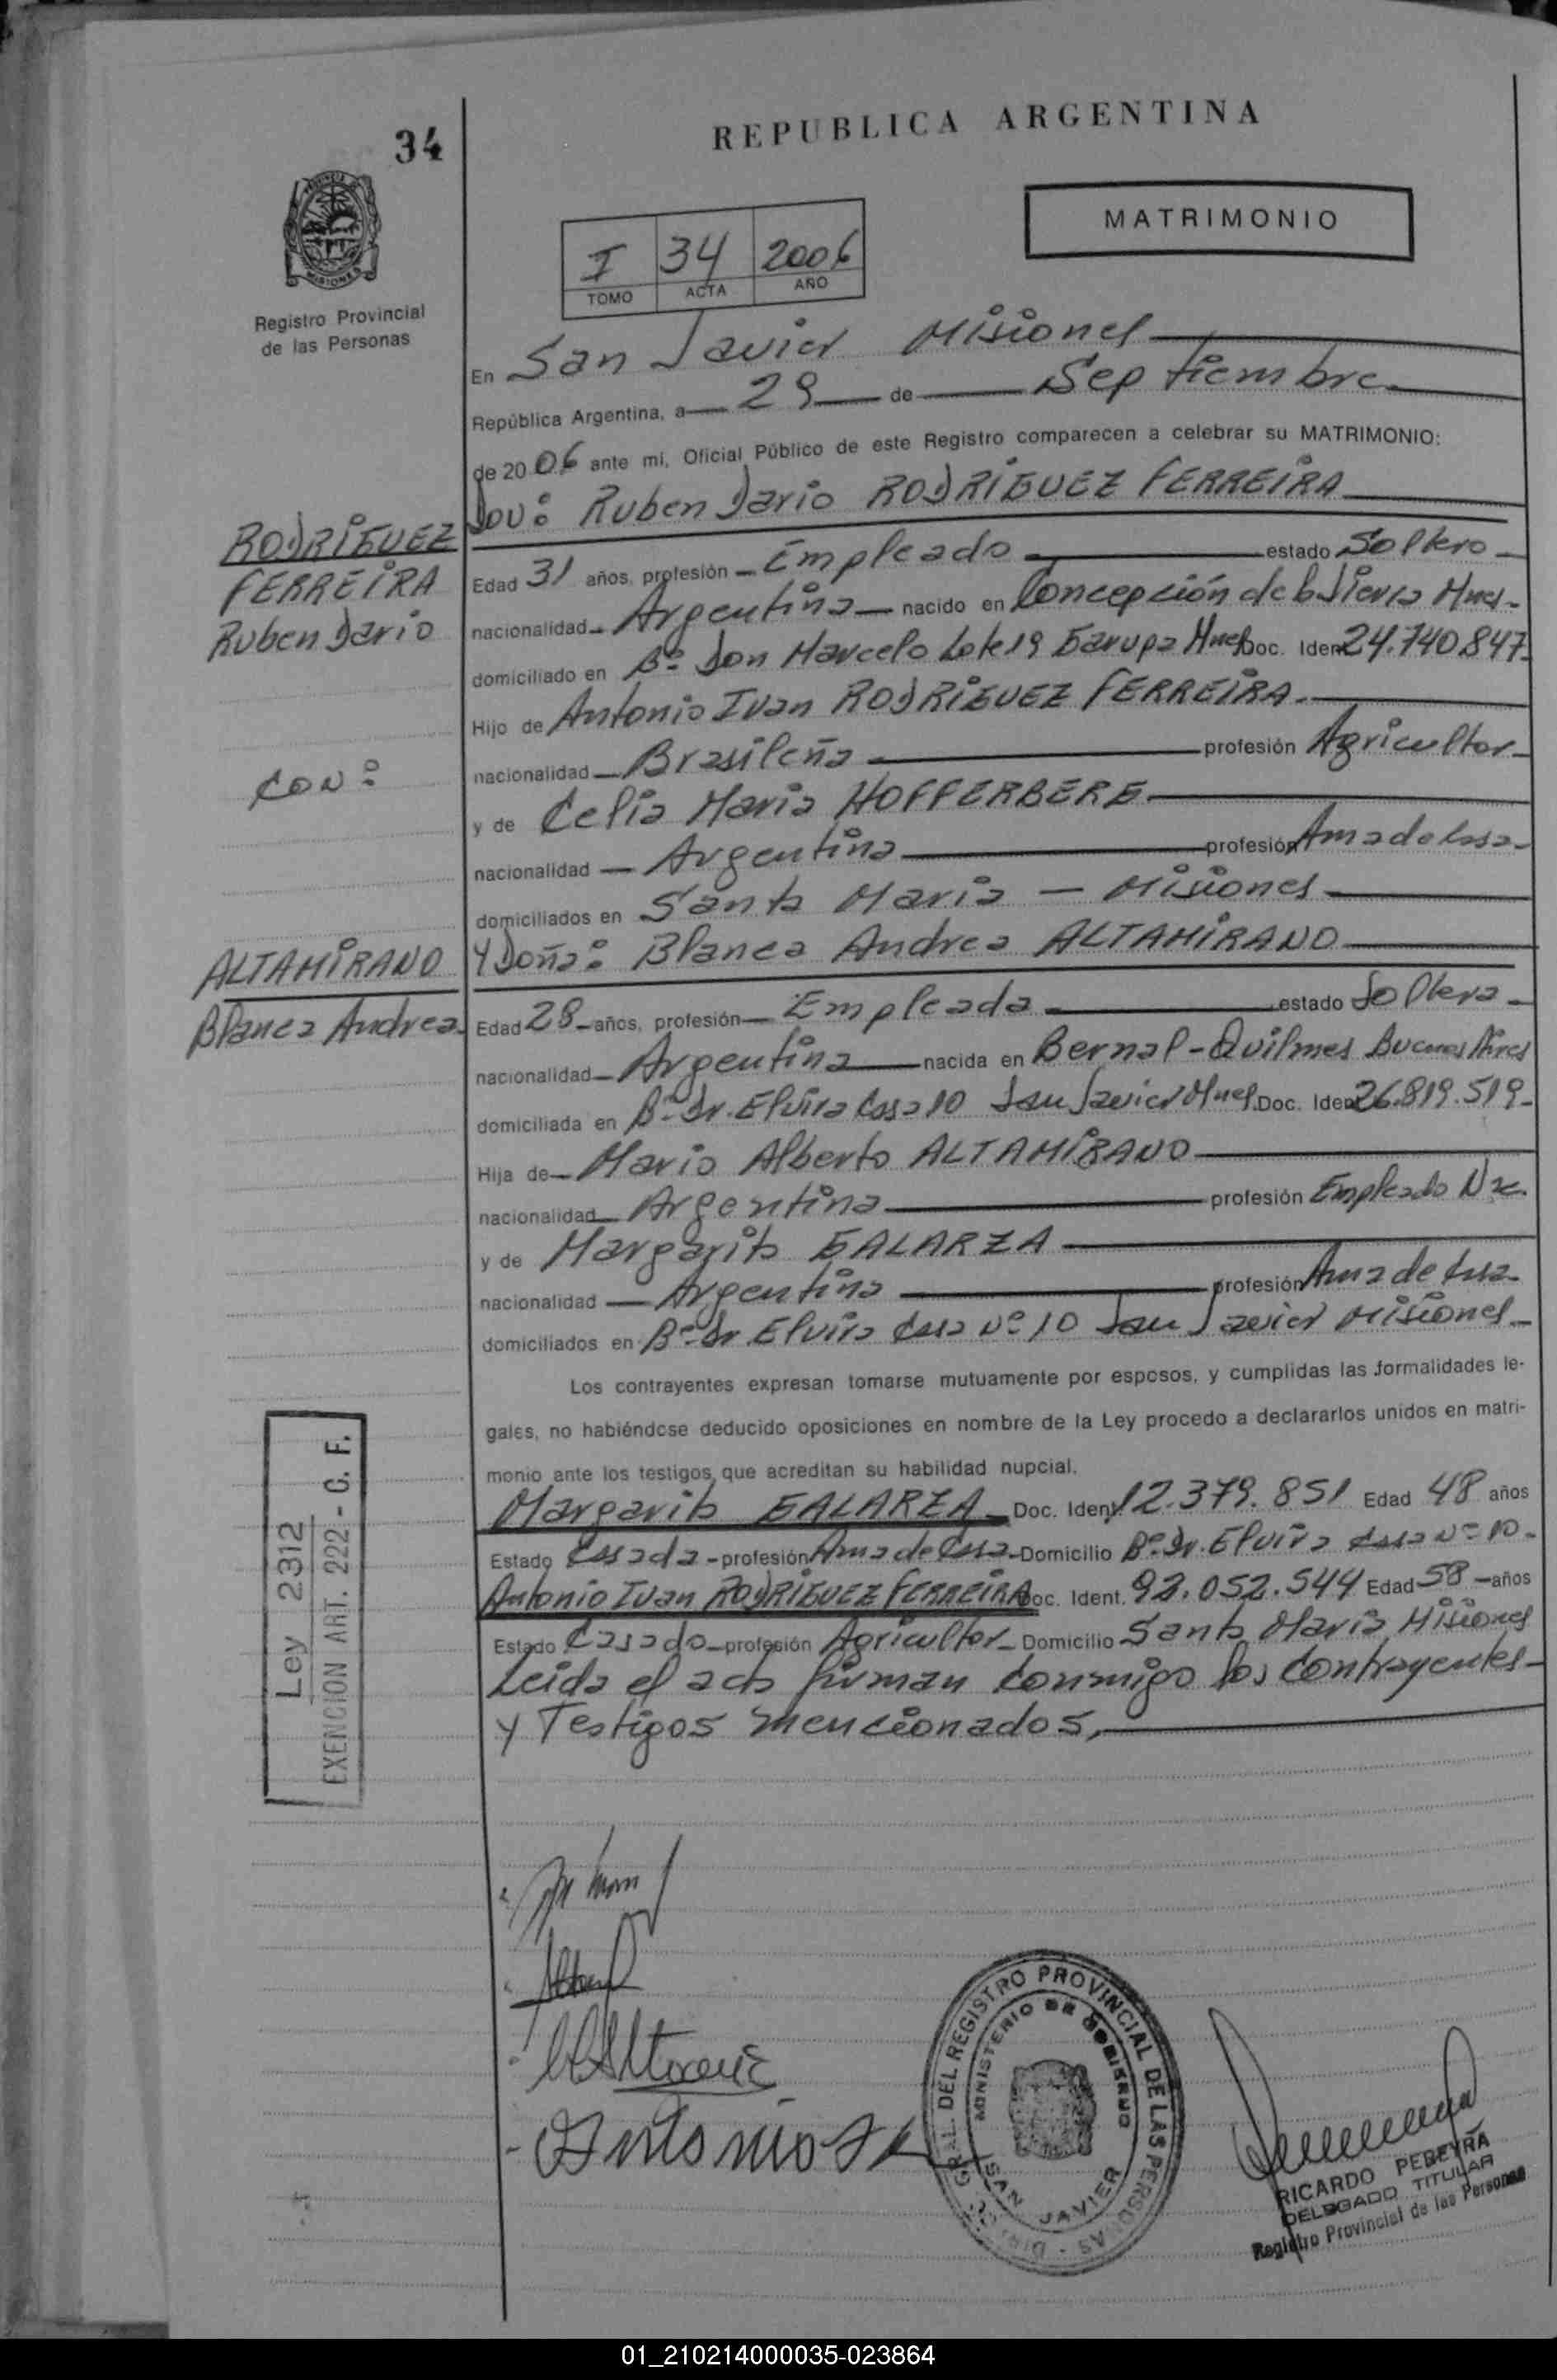 34
REPUBLICA ARGENTINA
PROVINCIA DE
MISIONES
Registro Provincial
de las Personas
MATRIMONIO
I 34 2006
TOMO ACTA AÑO
En San Javier Misiones
República Argentina, a 29 de Septiembre
de 2006 ante mi, Oficial Público de este Registro comparecen a celebrar su MATRIMONIO:
Don: Ruben Dario RODRIGUEZ FERREIRA
RODRIGUEZ
FERREIRA
Ruben Dario
Edad 31 años, profesión Empleado estado Soltero
nacionalidad Argentina nacido en Concepción de la Sierra Mnes
domiciliado en Bº Don Marcelo Lote 19 Garupa Mnes Doc. Ident 24.740.847
Hijo de Antonio Ivan RODRIGUEZ FERREIRA
CON:
nacionalidad Brasileña profesión Agricultor
y de Celia Maria HOFFERBERG
nacionalidad Argentina profesión Ama de Casa
domiciliados en Santa Maria - Misiones
ALTAMIRANO
Blanca Andrea
Y Doña: Blanca Andrea ALTAMIRANO
Edad 28 años, profesión Empleada estado Soltera
nacionalidad Argentina nacida en Bernal - Quilmes Buenos Aires
domiciliada en Bº Dr. Elvira Casa 10 San Javier Mnes. Doc. Ident 26.819.519
Hija de Mario Alberto ALTAMIRANO
nacionalidad Argentina profesión Empleado Nac.
y de Margarita GALARZA
nacionalidad Argentina profesión Ama de Casa
domiciliados en Bº Dr Elvira Casa Nº 10 San Javier Misiones
Los contrayentes expresan tomarse mutuamente por esposos, y cumplidas las formalidades le-
gales, no habiéndose deducido oposiciones en nombre de la Ley procedo a declararlos unidos en matri-
monio ante los testigos que acreditan su habilidad nupcial.
Margarita GALARZA Doc. Ident. 12.379.851 Edad 48 años
Estado Casada profesión Ama de Casa Domicilio Bº Dr. Elvira Casa Nº 10
Antonio Ivan RODRIGUEZ FERREIRA Doc. Ident. 92.052.544 Edad 58 años
Estado Casado profesión Agricultor Domicilio Santa Maria Misiones
Leida el acta firman conmigo los Contrayentes
y Testigos mencionados,
Ley 2312
EXENCION ART. 222 - C. F.
Antonio
GRAL. DEL REGISTRO PROVINCIAL DE LAS PERSONAS
MINISTERIO DE GOBIERNO
SAN JAVIER
RICARDO PEREYRA
DELEGADO TITULAR
Registro Provincial de las Personas
01_210214000035-023864